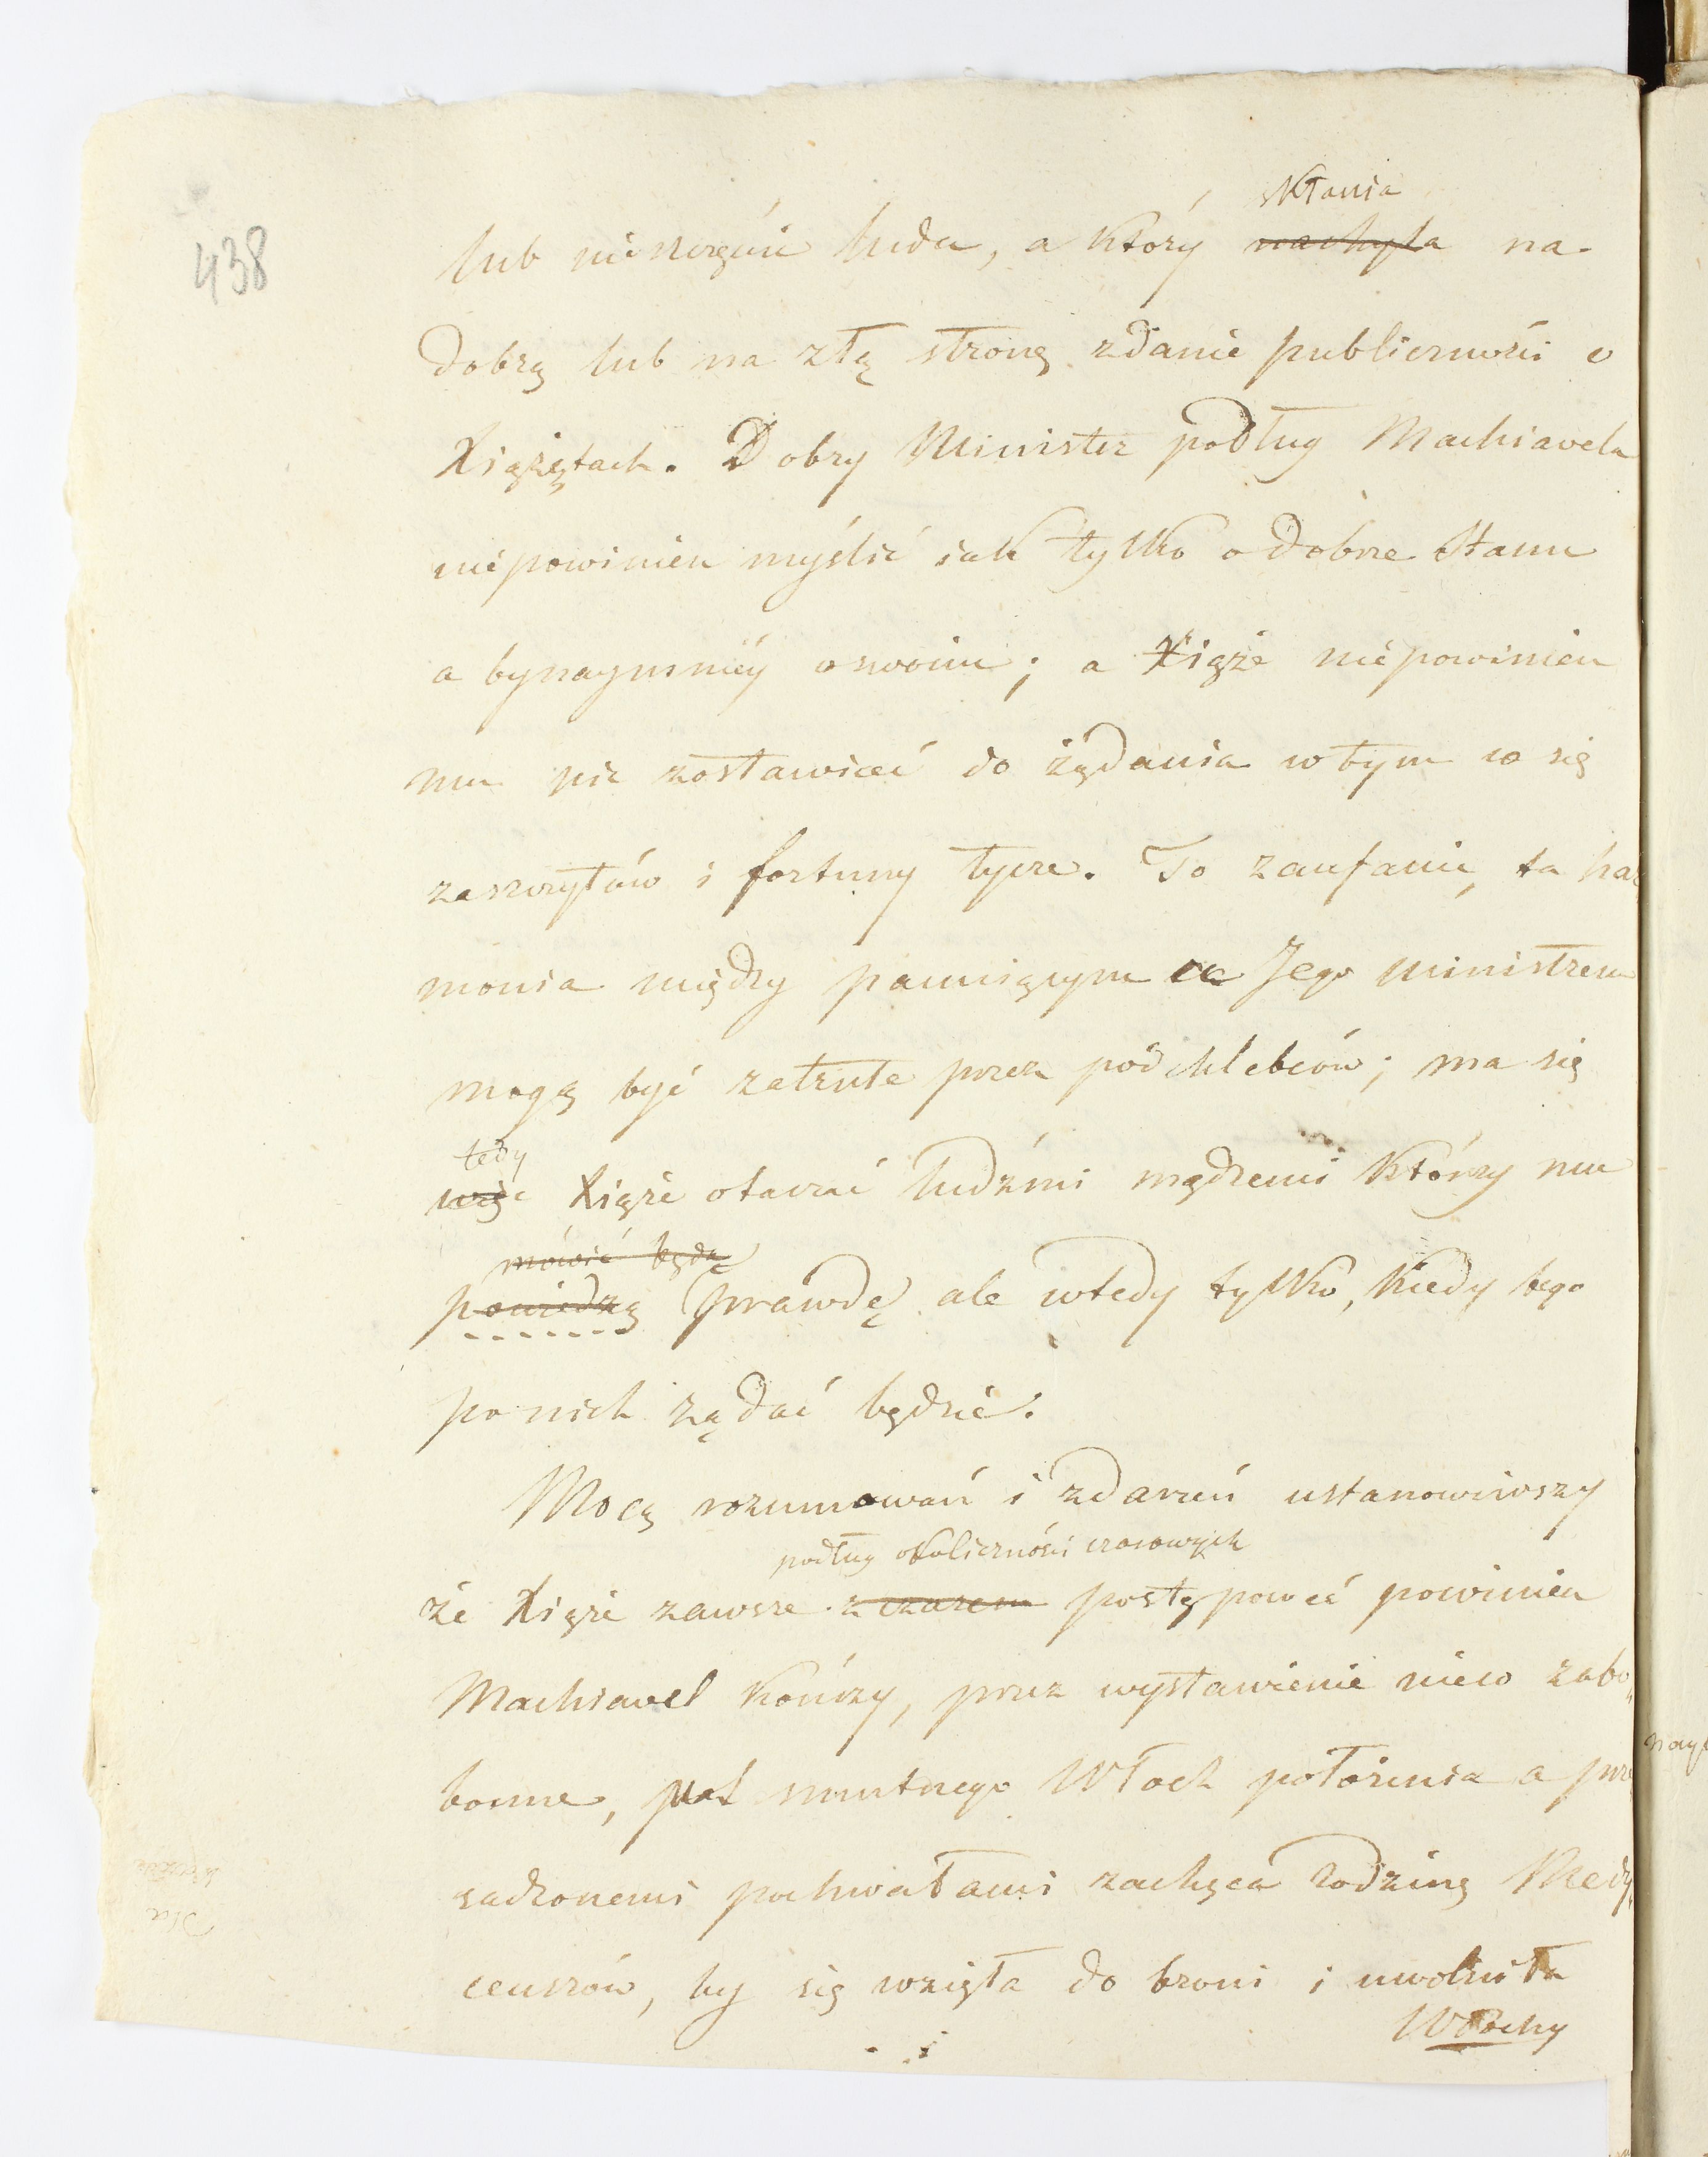 438
skłania
lub nieszczęście ludu, a który nachyla na
dobrą lub na złą stronę zdanie publiczności o
Xiążętach. Dobry Minister podług Machiavela
niepowinien myślić iak tylko o dobrze Stanu
a bynaymniéy o swoim; a Xiąże niepowinien
mu nic zostawiać do żądania w tym co się
zaszczytów i fortuny tycze. To zaufanie, ta har
monia między panuiącym a Jego ministrem
mogą być zatrute przez pódchlebców; ma się
tedy
więc Xiąże otaczać ludźmi mądremi którzy mu
mówić będą
powiedzą prawdę ale wtedy tylko, kiedy tego
po nich żądać będzie.
Mocą rozumowań i zdarzeń ustanowiwszy
podług okoliczności czasowych
że Xiąże zawsze z czasem postępować powinien
Machiavel kończy, przez wystawienie nieco zabo„
bonne, smutnego Włoch położenia a prze
sadzonemi pochwałami zachęca rodzinę Medy„
ceuszów, by się wzięła do broni i uwolniła
Włochy